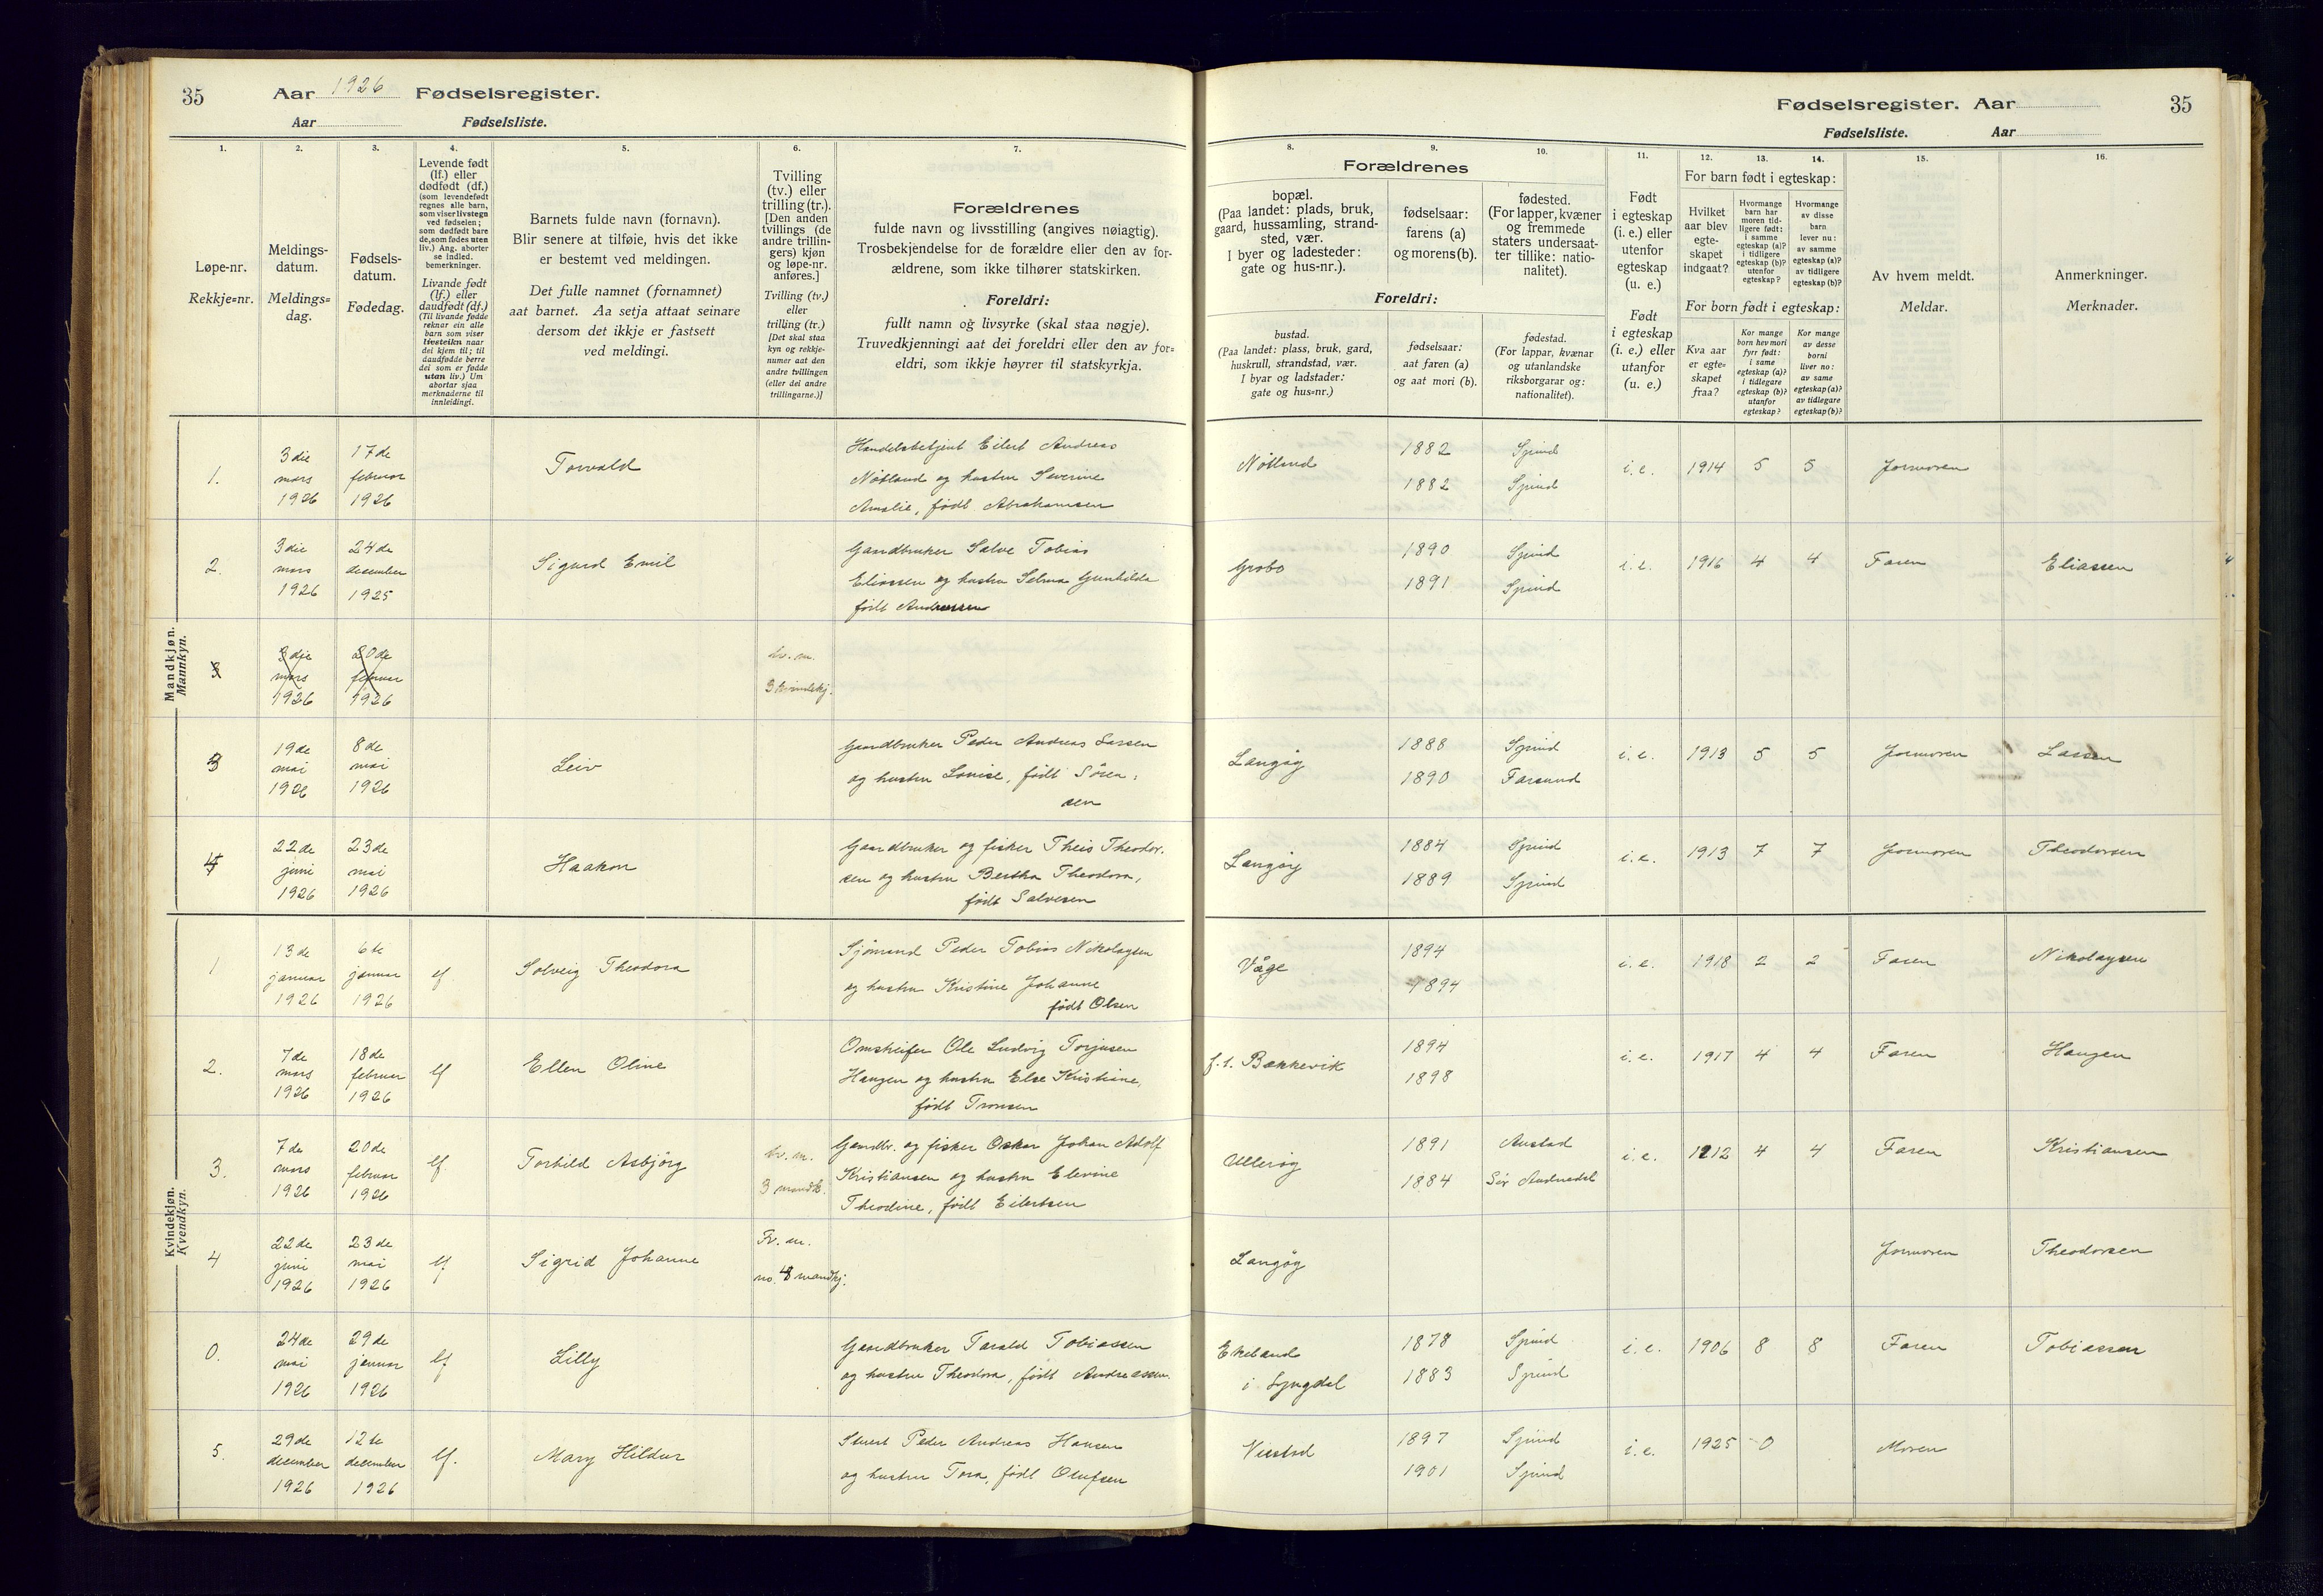 35 Aar 1926 Fødselsregister.
Aar Fødselsliste.
Fødselsregister. Aar 35
Fødselsliste. Aar
1. 2. 3. 4. 5. 6. 7.
Løpe-nr.
Rekkje=nr.
Meldings-
datum.
Meldings=
dag.
Fødsels-
datum.
Fødedag.
Levende født
(lf.) eller
dødfødt (df.)
(som levendefødt
regnes alle barn,
som viser livstegn
ved fødselen;
som dødfødt bare
de, som fødes uten
liv.) Ang. aborter
se indled.
bemerkninger.
Livande født
(lf.) eller
daudfødt (df.)
(Til livande fødde
reknar ein alle
barn som viser
livsteikn naar
dei kjem til; til
daudfødde berre
dei som er fødde
utan liv.) Um
abortar sjaa
merknaderne til
innleidingi.
Barnets fulde navn (fornavn).
Blir senere at tilføie, hvis det ikke
er bestemt ved meldingen.
Det fulle namnet (fornamnet)
aat barnet. Aa setja attaat seinare
dersom det ikkje er fastsett
ved meldingi.
Tvilling
(tv.) eller
trilling (tr.).
[Den anden
tvillings (de
andre trillin-
gers) kjøn
og løpe-nr.
anføres.]
Tvilling (tv.)
eller
trilling (tr.)
[Det skal staa
kyn og rekkje-
numer aat den
andre tvillingen
(eller dei andre
trillingarne.)]
Forældrenes
fulde navn og livsstilling (angives nøiagtig).
Trosbekjendelse for de forældre eller den av for-
ældrene, som ikke tilhører statskirken.
Foreldri:
fullt namn og livsyrke (skal staa nøgje).
Truvedkjenningi aat dei foreldri eller den av for=
eldri, som ikkje høyrer til statskyrkja.
8. 9. 10. 11. 12. 13. 14. 15. 16.
Forældrenes
bopæl.
(Paa landet: plads, bruk,
gaard, hussamling, strand-
sted, vær.
I byer og ladesteder:
gate og hus-nr.).
fødselsaar:
farens (a)
og morens (b).
fødested.
(For lapper, kvæner
og fremmede
staters undersaat-
ter tillike: natio-
nalitet).
Foreldri:
bustad.
(Paa landet: plass, bruk, gard,
huskrull, strandstad, vær.
I byar og ladstader:
gate og hus=nr.)
fødselsaar:
aat faren (a)
og aat mori (b).
fødestad.
(For lappar, kvænar
og utanlandske
riksborgarar og:
nationalitet).
Født
i egteskap
(i. e.) eller
utenfor
egteskap
(u. e.)
Født
i egteskap
(i. e.) eller
utanfor
(u. e.)
For barn født i egteskap:
Hvilket
aar blev
egte-
skapet
indgaat?
Hvormange
barn har
moren tid-
ligere født:
i samme
egteskap (a)?
i tidligere
egteskap (b)?
utenfor
egteskap?
Hvormange
av disse
barn
lever nu:
av samme
egteskap (a)?
av tidligere
egteskap (b)?
For born født i egteskap:
Kva aar
er egte=
skapet
fraa?
Kor mange
born hev mori
fyrr født:
i same
egteskap (a)?
i tidlegare
egteskap (b)?
utanfor
egteskap?
Kor mange
av desse
borni
liver no:
av same
egteskap (a)?
av tidlegare
egteskap (b)?
Av hvem meldt.
Meldar.
Anmerkninger.
Merknader.
Mandkjøn.
Mannkyn.
1. 3die mars 1926 17de februar 1926 Torvald
Handelsbetjent Eilert Andreas
Nøtland og hustru Severine
Amalie, født Abrahamsen
Nøtland 1882 1882 Spind Spind i.e. 1914 5 5 Jormoren
2. 3die mars 1926 24de desember 1925 Sigurd Emil
Gaardbruker Salve Tobias
Eliassen og hustru Selma Gunhilda
født Andreassen
Grobo 1890 1891 Spind Spind i.e. 1916 4 4 Faren Eliassen
3 3die mars 1926 20de februar 1926 tv. m. 3 kvindekj.
3 19de mai 1926 8de mai 1926 Leiv
Gaardbruker Peder Andreas Larsen
og hustru Lovise, født Sören=
sen
Langøy 1888 1890 Spind Farsund i.e. 1913 5 5 Jormoren Larsen
4 22de juni 1926 23de mai 1926 Haakon
Gaardbruker og fisker Theis Theodor-
sen og hustru Bertha Theodora,
født Salvesen
Langøy 1884 1889 Spind Spind i.e. 1913 7 7 Jormoren Theodorsen
Kvindekjøn.
Kvendkyn.
1 13de januar 1926 6te januar 1926 lf. Solveig Theodora
Sjömand Peder Tobias Nikolaysen
og hustru Kristine Johanne
født Olsen
Våge 1894 1894 i.e. 1918 2 2 Faren Nikolaysen
2. 7de mars 1926 18de februar 1926 lf Ellen Oline
Omstreifer Ole Ludvig Torjusen
Haugen og hustru Else Kristiane,
født Tronsen
f. t. Bækkevik 1894 1898 i.e. 1917 4 4 Faren Haugen
3. 7de mars 1926 20de februar 1926 lf Torhild Asbjörg tv. m. 3 mandk.
Gaardbr. og fisker Oskar Johan Adolf
Kristiansen og hustru Elevine
Theodine, født Eilertsen
Ullerøy 1891 1884 Austad Sör Audnedal i.e. 1912 4 4 Faren Kristiansen
4 22de juni 1926 23de mai 1926 lf Sigrid Johanne Tv. m. no. 4 mandkj.
Langøy Jormoren Theodorsen
0. 24de mai 1926 29de januar 1926 lf Lilly
Gaardbruker Tarald Tobiassen
og hustru Theodora, født Andreassen.
Ekeland
i Lyngdal 1878 1883 Spind Spind i.e. 1906 8 8 Faren Tobiassen
5. 29de december 1926 12te december 1926 lf. Mary Hildur
Stuert Peder Andreas Hansen
og hustru Tora, født Olufsen
Viestad 1897 1901 Spind Spind i.e. 1925 0 Moren